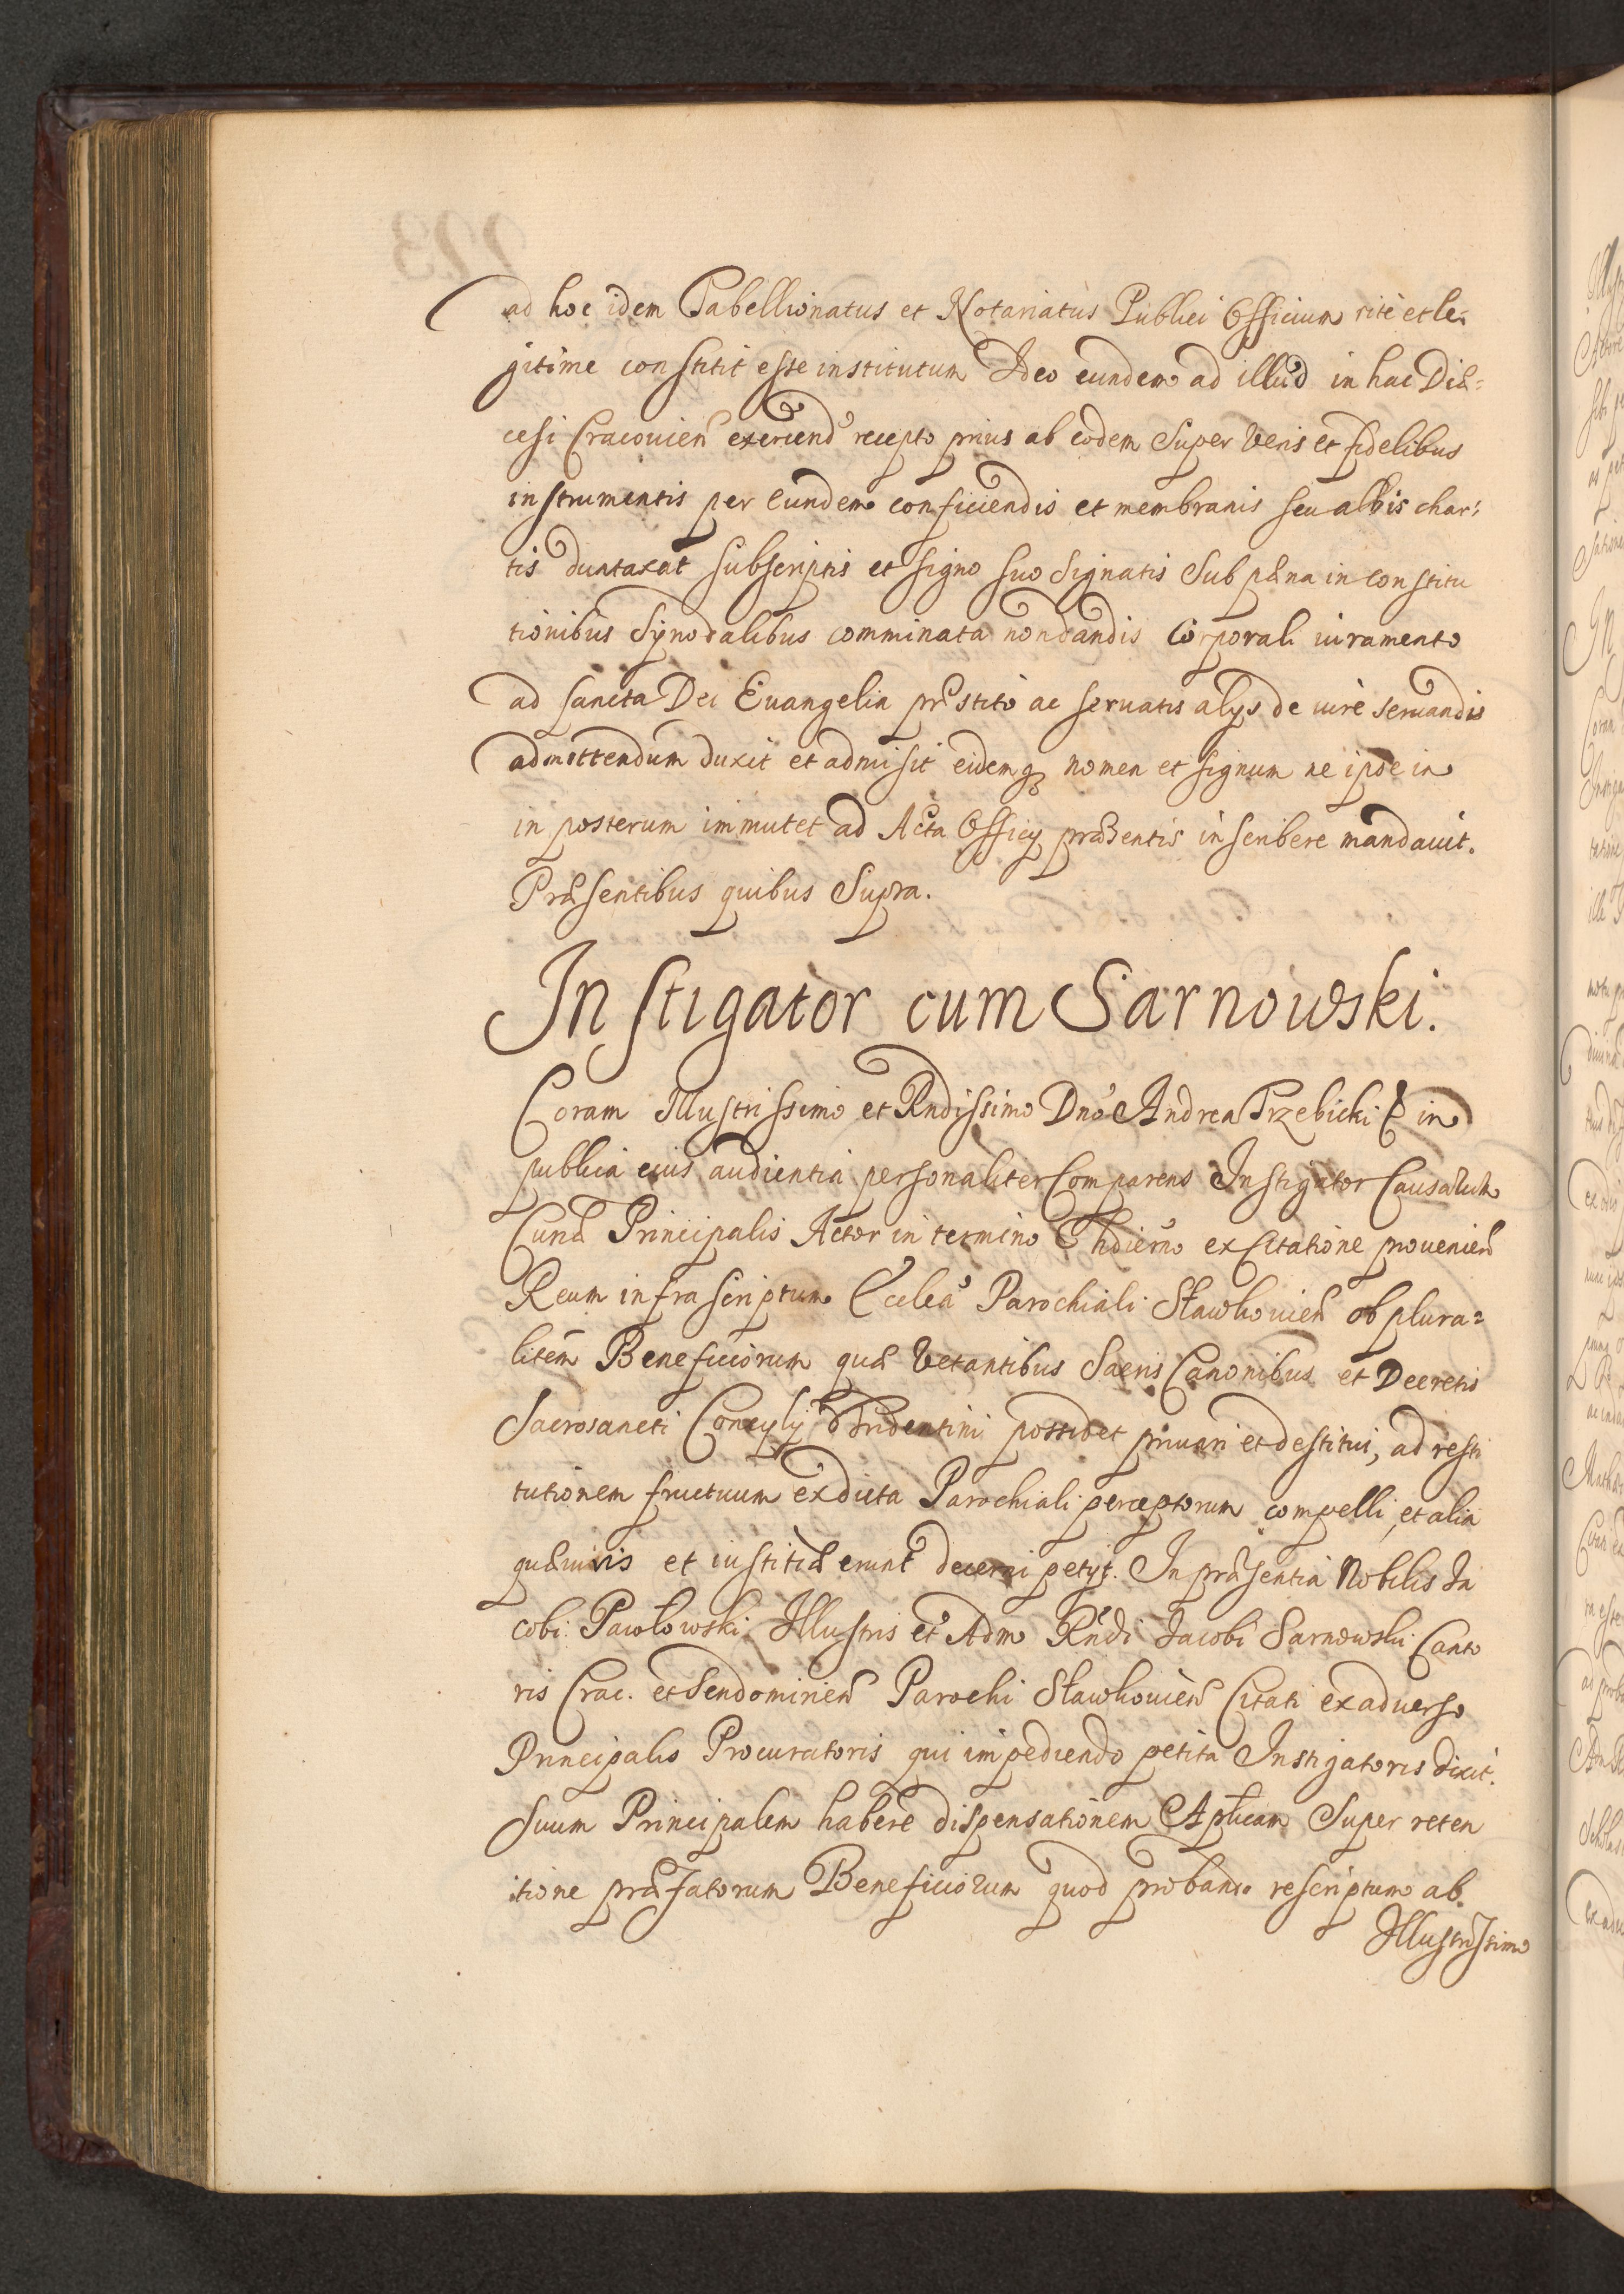 ad hoc idem Tabellionatus et Notariatus Publici Officium rite et le-
gitime constitit esse institutum Ideo eundem ad illud in hac Diæ=
cesi Cracouien exercend recepto prius ab eodem Super veris et fidelibus
instrumentis per eundem conficiendis et membranis seu albis char=
tis duntaxat subscriptis et signo suo signatis Sub pæna in constitu
tionibus Synodalibus comminata non dandis Corporali iuramento
ad sancta Dei Euangelia præstito ac seruatis alijs de iure seruandis
admittendum duxit et admisit eidemq nomen et signum ne ipse in
in posterum immutet ad Acta Officij præsentis inscribere mandauit.
Præsentibus quibus Supra.
Instigator cum Sarnowski.
Coram Illustrissimo et Rndissimo Dno Andrea Trzebicki & in
publica eius audientia personaliter Comparens Instigator Causarum
Curiæ Principalis Actor in termino hodierno ex Citatione prouenien
Reum infrascriptum Ecclea Parochiali Sławkouien ob plura=
litem Beneficiorum quæ vetantibus Sacris Canonibus et Decretis
Sacrosancti Concylij Tridentini possidet priuari et destitui, ad resti
tutionem fructuum ex dicta Parochiali perceptorum compelli, et alia
quæ iuris et iustitiæ erunt decerni petijt. In præsentia Nobilis Ia
cobi Pawłowski Illustris et Adm Rndi Iacobi Sarnowski Canto
ris Crac. et Sendomirien Parochi Sławkouien Citati ex aduerso
Principalis Procuratoris qui impediendo petita Instigatoris dixit.
Suum Principalem habere dispensationem Aplicam Super reten
tione præfatorum Beneficiorum quod probans rescriptum ab
Illustrissimo